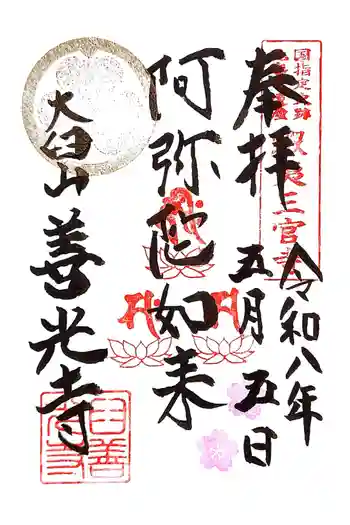 国指定史跡
蝦夷三官寺
奉拝
令和八年
五月五日
阿弥陀如来
大臼山善光寺
臼善
光寺